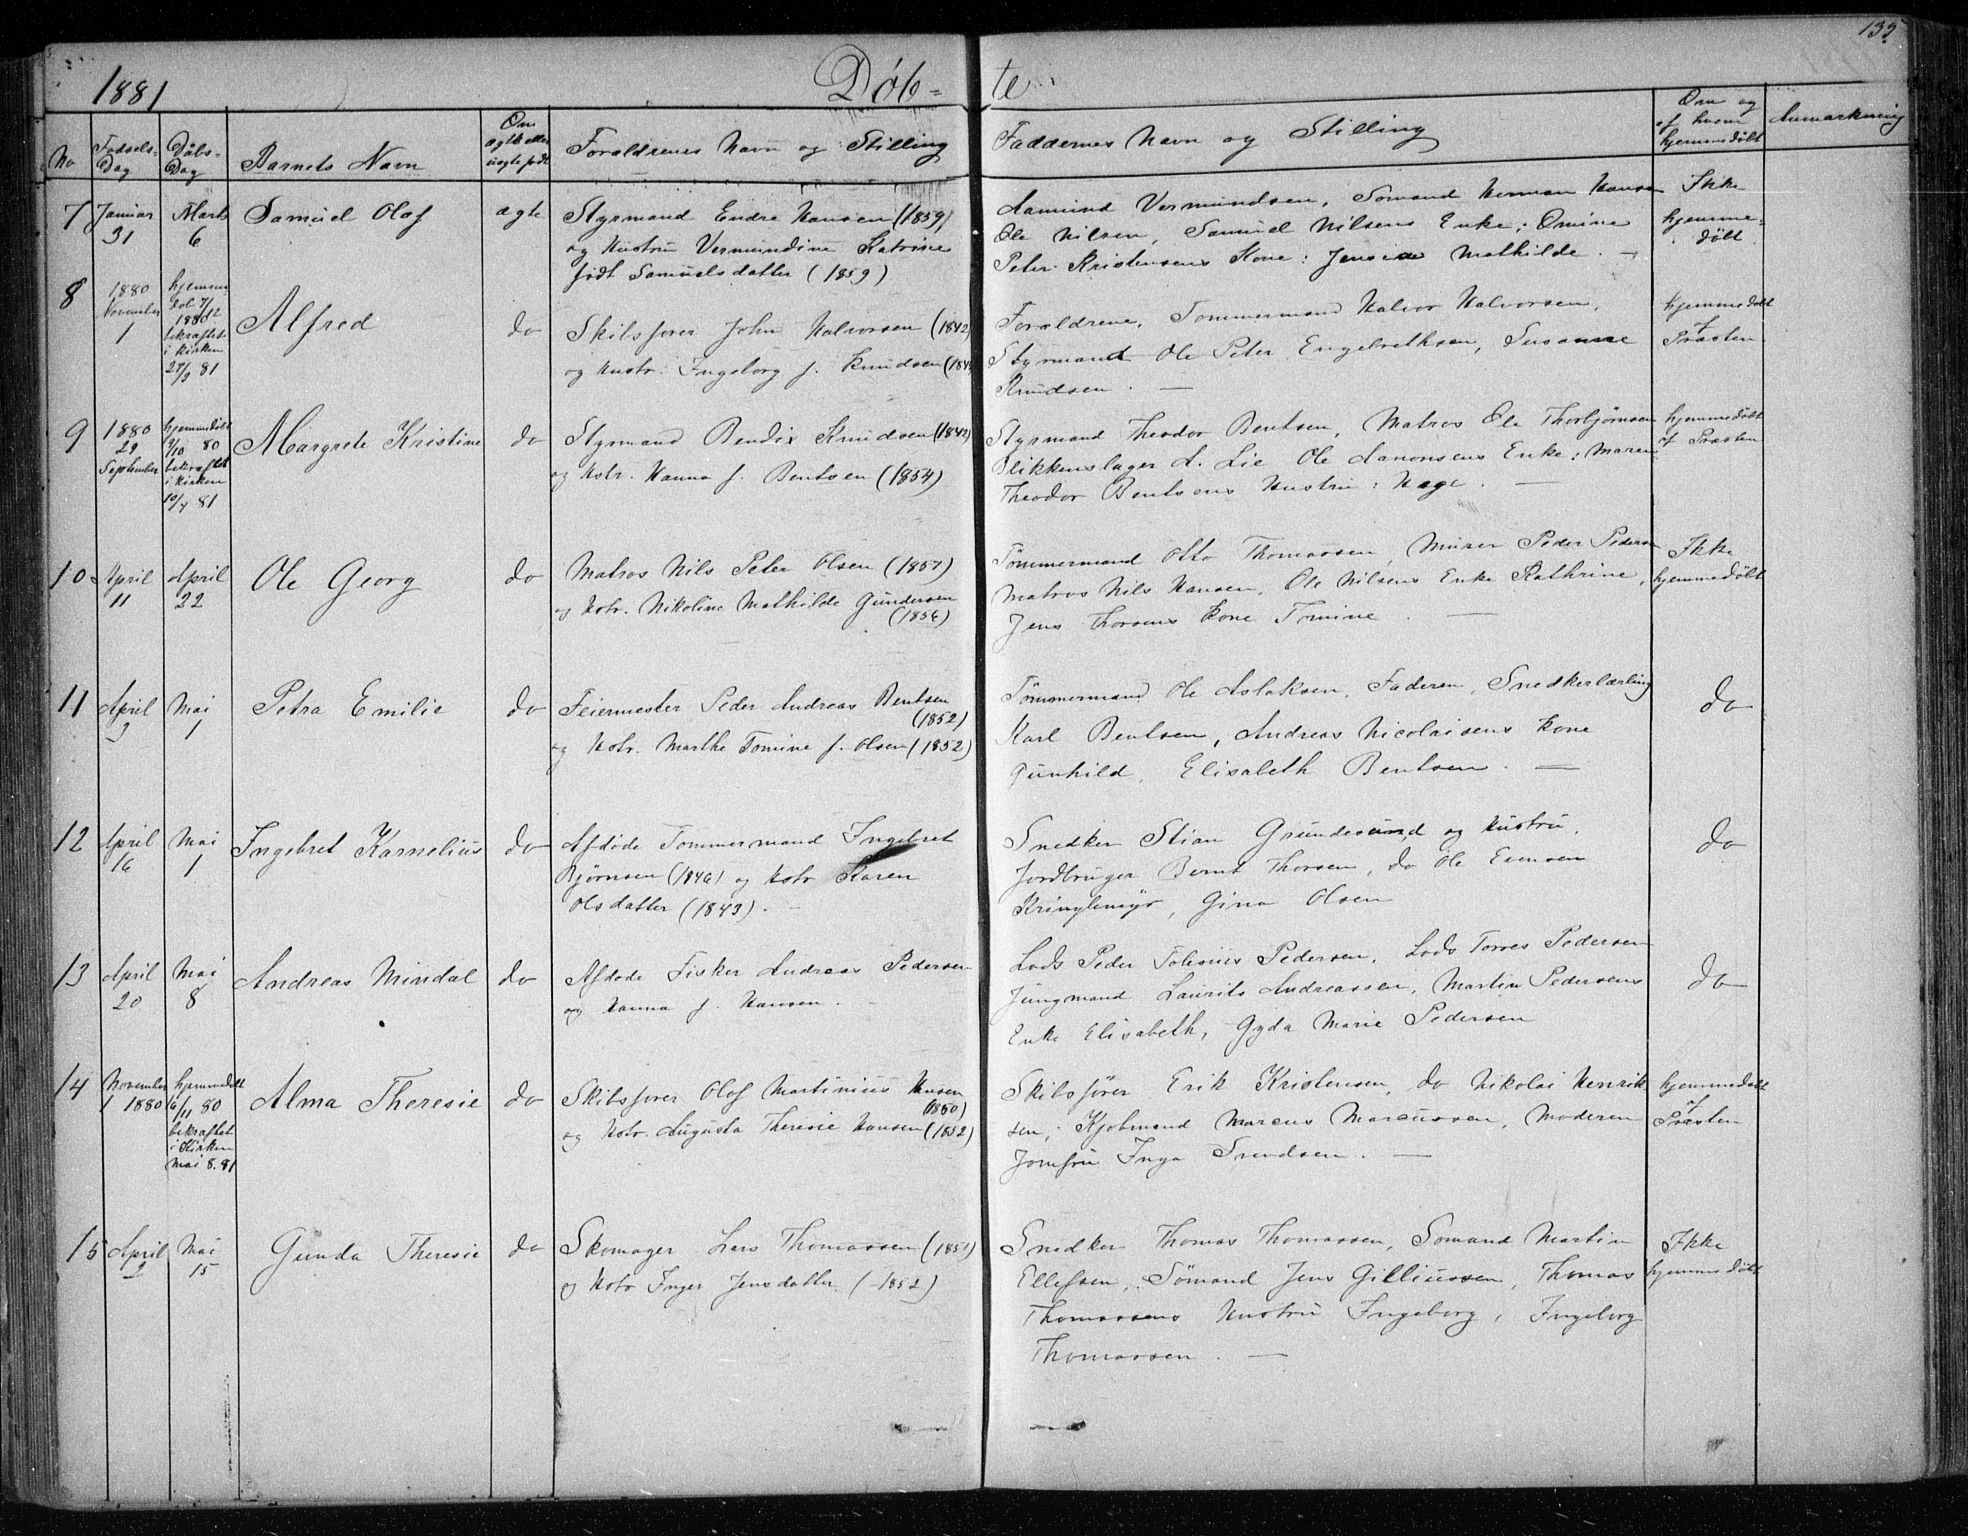 135
1881 Døb- te
No Fødsels-Dag Døbs-Dag Barnets Navn Om ægte eller uægte født Forældrenes Navn og Stilling Faddernes Navn og Stilling Om og af hvem hjemmedøbt Anmærkning
7 Januar 31 Marts 6 Samuel Olaf ægte
Styrmand Endre Hansen (1859)
og Hustru Vermundine Katrine
født Samuelsdatter (1859)
Aamund Vermundsen, Sømand Herman Hansen
Ole Nilsen, Samuel Nilsens Enke: Omine
Peter Kristensens Kone: Jensine Mathilde. —
Ikke
hjemme-
døbt
8 1880 November 1
hjemme
døb 7/12
1880
bekræftet
i Kirken
27/3 81
Alfred do
Skibsfører John Halvorsen (1842)
og Hustr: Ingeborg f. Knudsen
Forældrene, Tømmermand Halvor Halvorsen,
Styrmand Ole Peter Engebrethsen, Susanne
Knudsen. —
hjemmedøbt
af
Præsten
9 1880 29 September
hjemmedøbt
9/10 80
bekræftet
i Kirken
10/4 81
Margrete Kristine do
Styrmand Bendix Knudsen (1842)
og Hstr. Hanna f. Bentsen (1854)
Styrmand Theodor Bentsen, Matros Ole Thorbjørnsen
Blikkenslager A. Lie Ole Aanonsens Enke: Maren
Theodor Bentsens Hustru: Hage. —
hjemmedøbt
af Præsten
10 April 11 April 22 Ole Georg do
Matros Nils Peter Olsen (1857)
og Hstr. Nikoline Mathilde Gundersen
(1856)
Tømmermand Otto Thomassen, Murer Peder Pedersen
Matros Nils Hansen, Ole Nilsens Enke Kathrine,
Jens Thorsens Kone Tomine. —
Ikke
hjemmedøbt
11 April 3 Mai 1 Petra Emilie do
Feiermester Peder Andreas Bentsen
(1852)
og Hstr. Marthe Tomine f. Olsen (1852)
Tømmermand Ole Aslaksen, Faderen, Snedkerlærling
Karl Bentsen, Andreas Nicolaisens Kone
Gunhild, Elisabeth Bentsen. —
do
12 April 16 Mai 1 Ingebret Karnelius do
Afdøde Tømmermand Ingebret
Bjørnsen (1846) og Hstr Karen
Olsdatter (1843).
Snedker Stian Grundesund og Hustru,
Jordbruger Bernt Thorsen, do Ole Evensen
Kringlemyr, Gina Olsen
do
13 April 20 Mai 8 Andreas Mindal do
Afdøde Fisker Andreas Pedersen
og Hanna f. Hansen.
Lods Peder Tolenius Pedersen, Lods Torres Pedersen
Jungmand Laurits Andreassen, Martin Pedersens
Enke Elisabeth, Gyda Marie Pedersen
do
14 November 1 1880
hjemmedøbt
6/11 80
bekræftet
i Kirken
Mai 8. 81
Alma Theresie do
Skibsfører Olof Martinius Hansen
(1850)
og Hstr. Augusta Theresie Hansen (1852)
Skibsfører Erik Kristensen, do Nikolai Henrik
sen, Kjøbmand Marcus Marcussen, Moderen
Jomfru Inga Svendsen. —
hjemmedøbt
af
Præsten
15 April 2 Mai 15 Gunda Theresie do
Skomager Lars Thomassen (1851)
og Hstr Inger Jensdatter (1852)
Snedker Thomas Thomassen, Sømand Martin
Ellefsen, Sømand Jens Gilliussen, Thomas
Thomassens Hustru Ingeborg, Ingeborg
Thomassen. —
Ikke
hjemmedøbt